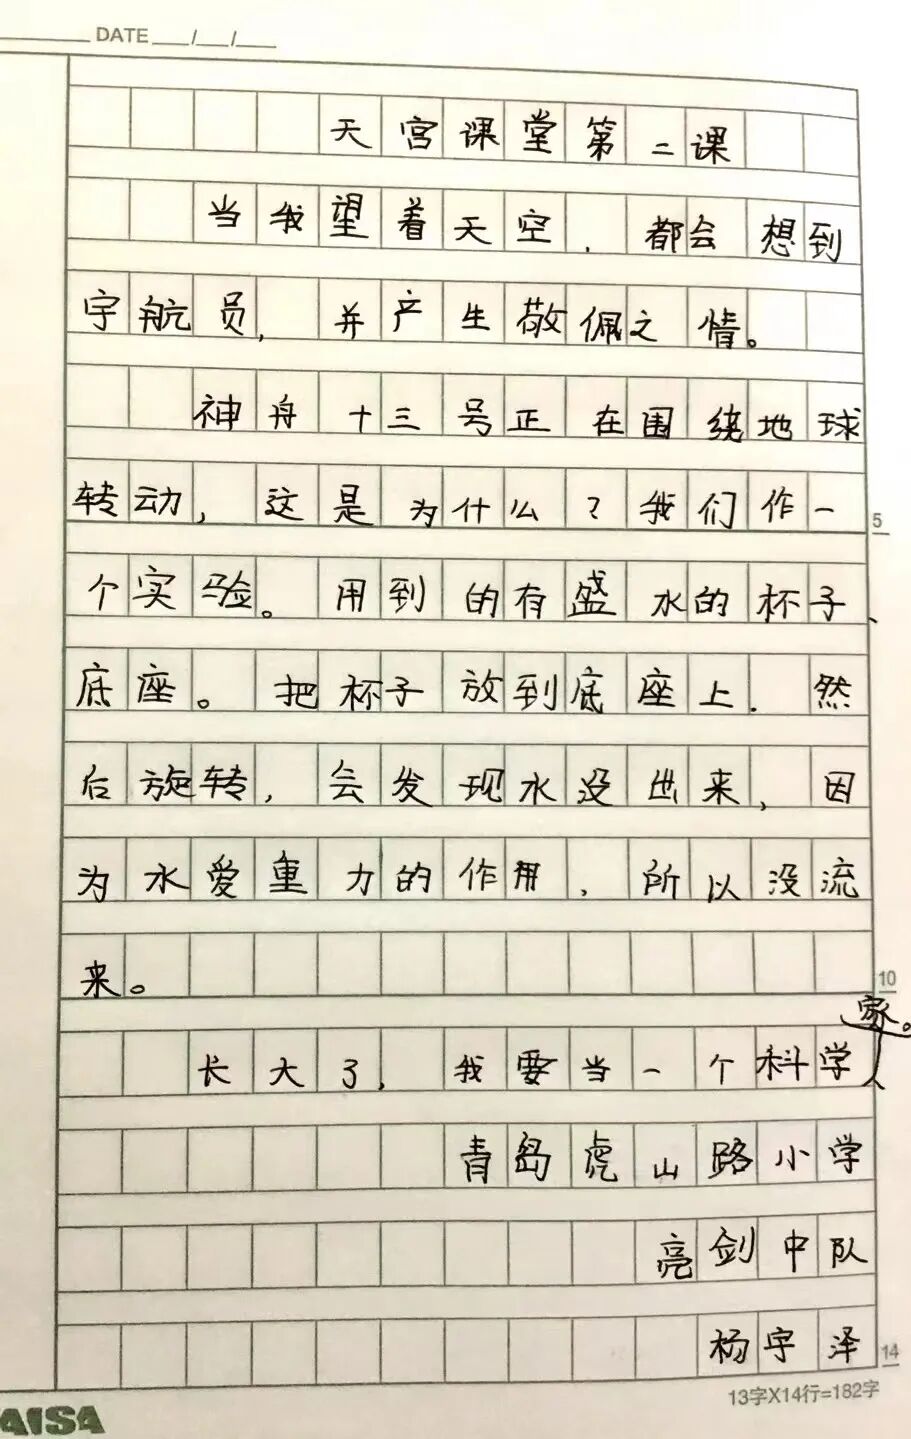 DATE ___/___/___
天宫课堂第二课
当我望着天空，都会想到
宇航员，并产生敬佩之情。
神舟十三号正在围绕地球
转动，这是为什么？我们作一
个实验。用到的有盛水的杯子、
底座。把杯子放到底座上．然
后旋转，会发现水没出来，因
为水爱重力的作用，所以没流
来。
长大了，我要当一个科学家。
青岛虎山路小学
亮剑中队
杨宇泽
5
10
14
13字X14行=182字
AISA